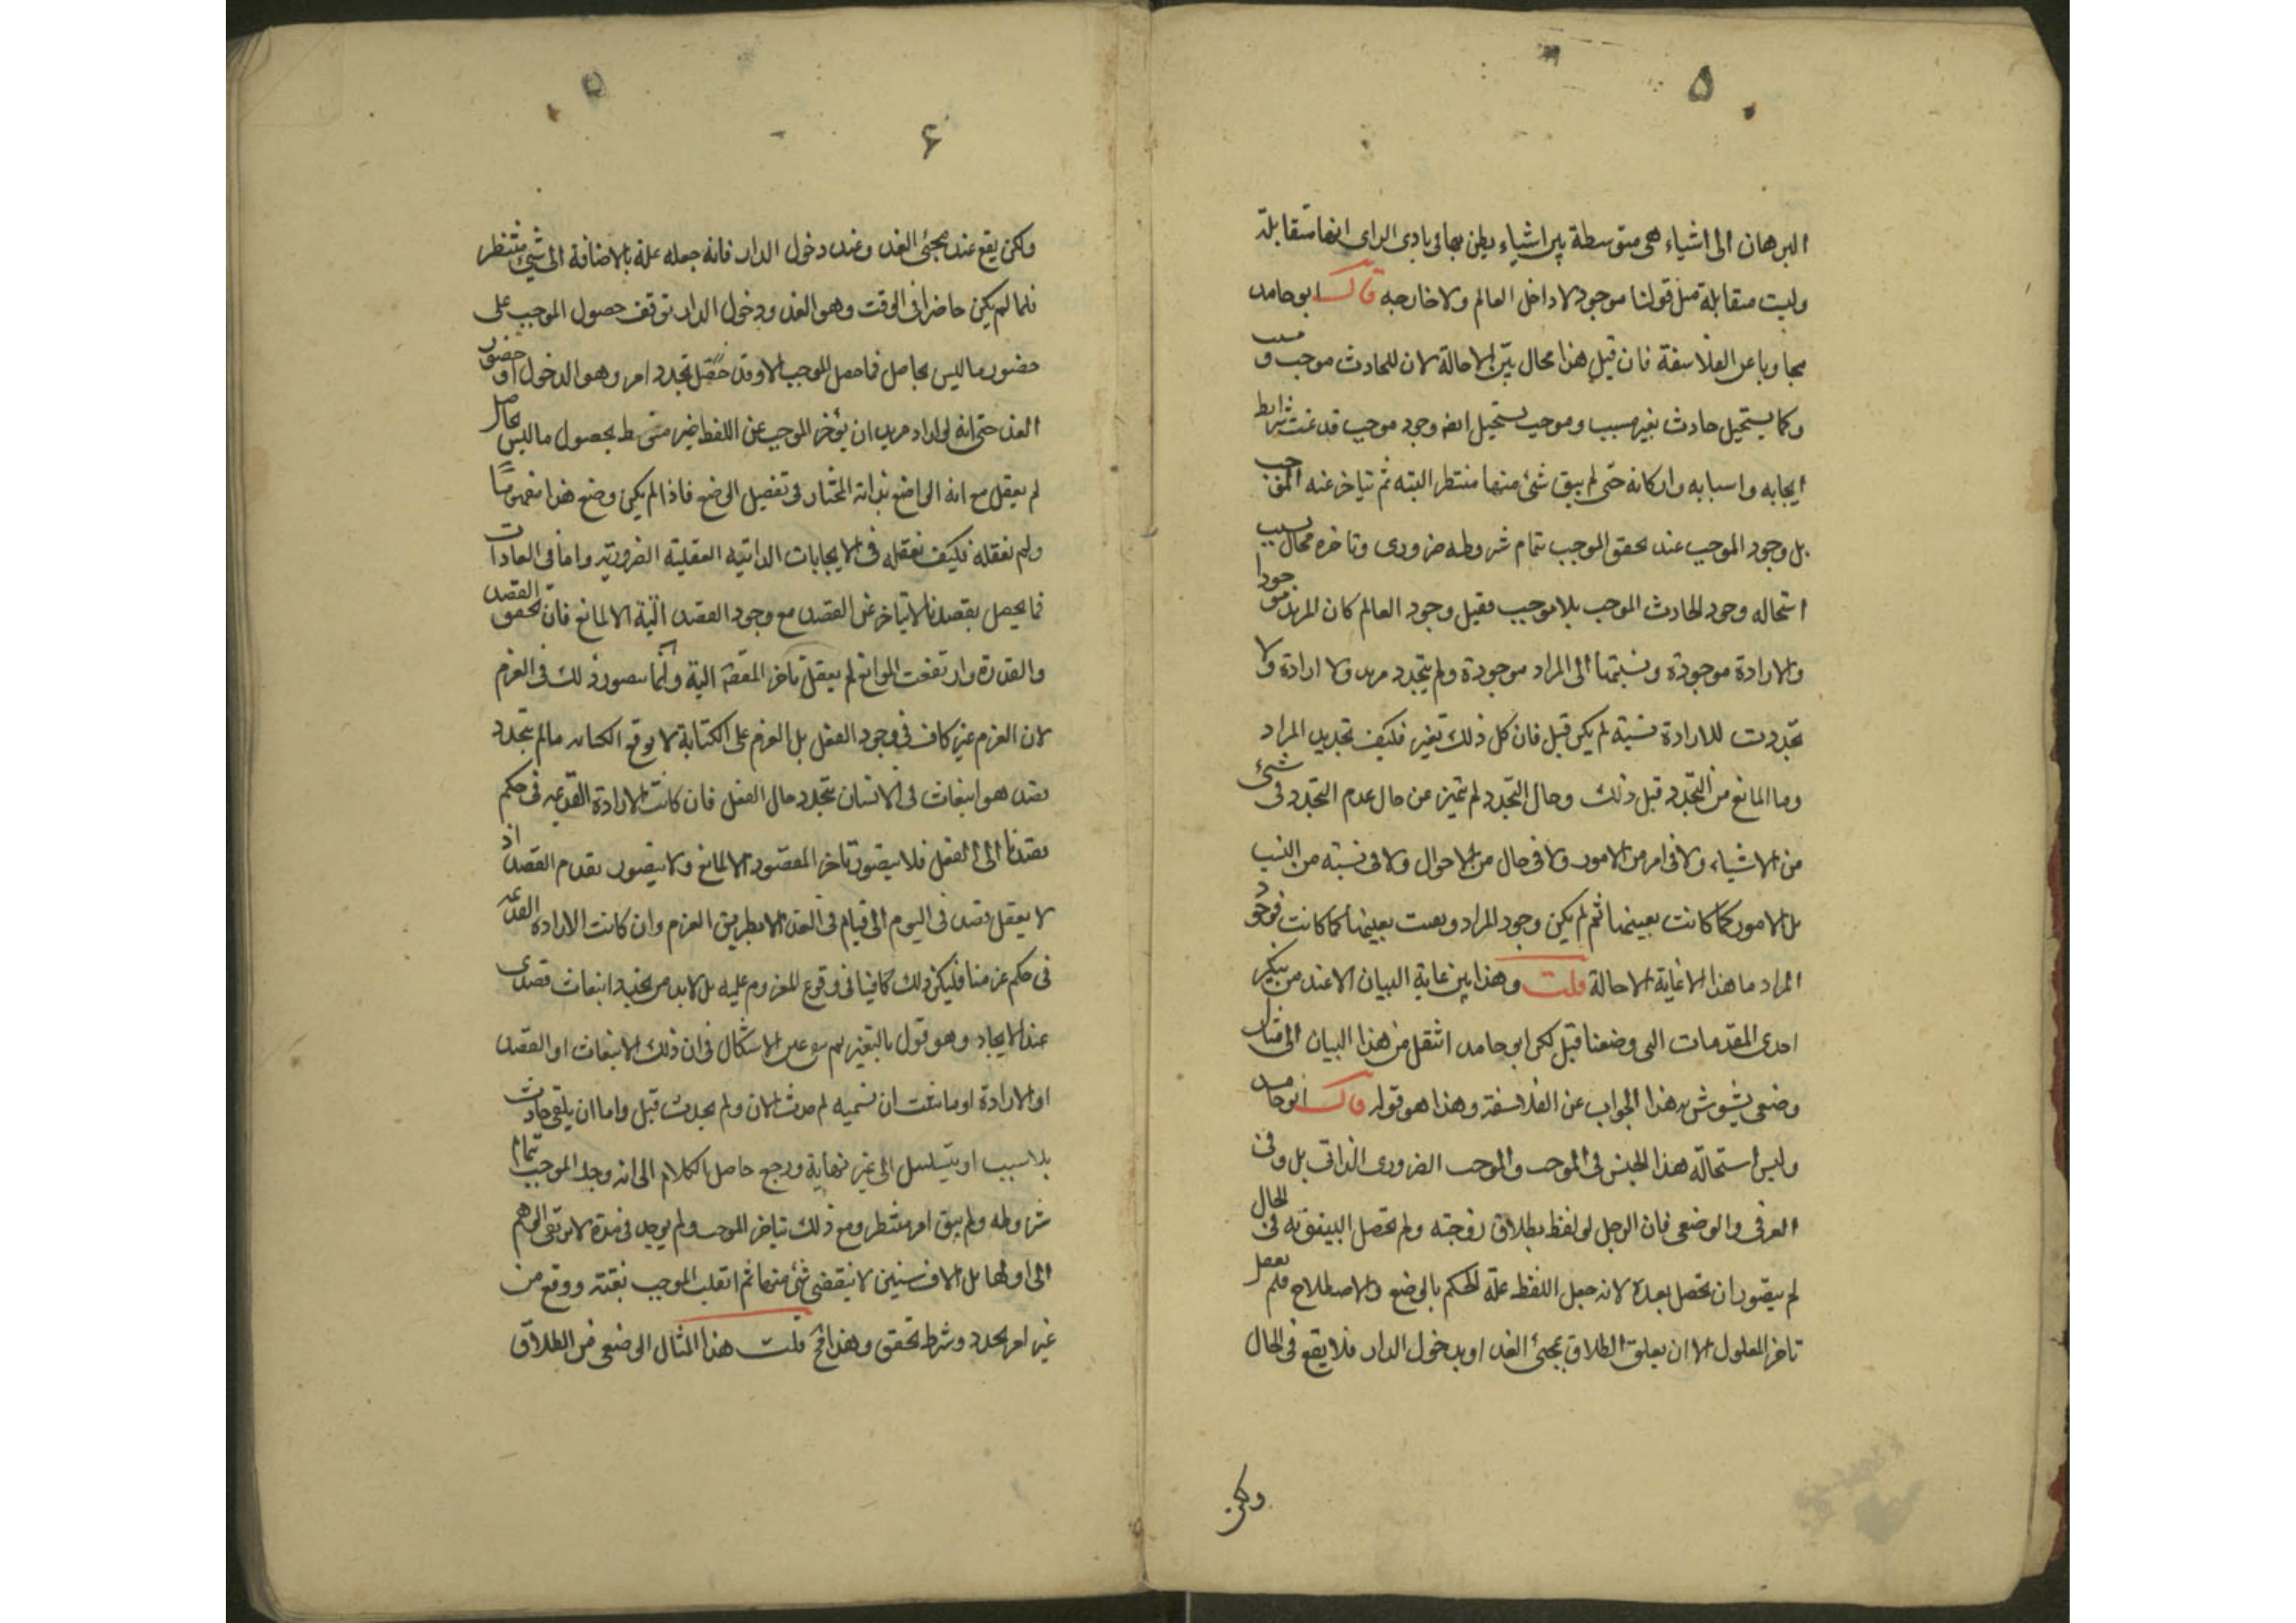 ۵
البرهان الى اشياء هى متوسطة بين اشياء يظن بها فى بادى الراى انها متقابلة
وليست متقابلة مثل قولنا موجود لا داخل العالم ولا خارجه قال ابو حامد
مجاوبا عن الفلاسفة فان قيل هذا محال بيّن الاحالة لان للحادث موجب و مسبب
وكما يستحيل حادث بغير مسبب وموجب يستحيل ايضا وجود موجب قد تمت شرايط
ايجابه واسبابه واركانه حتى لم يبق شئ منها منتظر البتة ثم يتاخر عنه الموجب
بل وجود الموجب عند تحقق الموجب بتمام شروطه ضرورى وتاخره محال حسب
استحاله وجود الحادث الموجب بلا موجب فقبل وجود العالم كان المريد موجودا
والارادة موجودة ونسبتها الى المراد موجودة ولم يتجدد مريد ولا ارادة ولا
تجددت للارادة نسبة لم يكن قبل فان كل ذلك تغير فكيف تجديد المراد
وما المانع من التجدد قبل ذلك وحال التجدد لم تتميز عن حال عدم التجدد فى شئ
من الاشياء ولا فى امر من الامور ولا فى حال من الاحوال ولا فى نسبة من النسب
بل الامور كما كانت بعينها ثم لم يكن وجود المراد وبقيت بعينها كما كانت فوجد
المراد ما هذا الا غاية الاحالة قلت وهذا بين غاية البيان الا عند من ينكر
احدى المقدمات التى وضعنا قبل لكن ابو حامد انتقل من هذا البيان الى مثال
وضعى يشوش به هذا الجواب عن الفلاسفة وهذا هو قوله قال ابو حامد
وليس استحالة هذا الجنس فى الموجب والموجب الضرورى الذاتى بل وفى
العرفى والوضعى فان الرجل لو لفظ بطلاق زوجته ولم تحصل البينونة فى الحال
لم يتصور ان تحصل بعده لانه جعل اللفظ علة للحكم بالوضع والاصطلاح فلم يعقل
تاخر المعلول الا ان يعلق الطلاق بمجئ الغد او بدخول الدار فلا يقع فى الحال
ولكن
۶
ولكن يقع عند مجئ الغد وعند دخول الدار فانه جعله علة بالاضافة الى شئ منتظر
فلما لم يكن حاضرا فى الوقت وهو الغد ودخول الدار توقف حصول الموجب على
حضور ما ليس بحاصل فما حصل الموجب الا وقد حصل تجدد امر وهو الدخول او حضور
الغد حتى انه لو اراد مريد ان يؤخر الموجب عن اللفظ غير منوط بحصول ما ليس بحاصل
لم يعقل مع انه الواضع بذاته المختار فى تفصيل الوضع فاذا لم يكن وضع هذا مفهومنا
ولم نعقله فكيف نعقله فى الايجابات الذاتية العقلية الضرورية واما فى العادات
فما يحصل بقصدنا لا يتاخر عن القصد مع وجود القصد اليه الا لمانع فان تحقق القصد
والقدرة وارتفعت الموانع لم يعقل تاخر المقصود اليه وانما يتصور ذلك فى العزم
لان العزم غير كاف فى وجود الفعل بل العزم على الكتابة لا يوقع الكتابة ما لم يتجدد
قصد هو انبعاث فى الانسان يتجدد حال الفعل فان كانت الارادة القديمة فى حكم
قصدنا الى الفعل فلا يتصور تاخر المقصود الا لمانع ولا يتصور تقدم القصد اذ
لا يعقل قصد فى اليوم الى قيام فى الغد الا بطريق العزم وان كانت الارادة القديمة
فى حكم عزمنا فليكن ذلك كافيا فى وقوع المعزوم عليه بل لابد من تجديد انبعاث قصدى
عند الايجاد وهو قول بالتغير ثم يبقى عين الاشكال فى ان ذلك الانبعاث او القصد
او الارادة او ما شئت ان تسميه لم حدث الان ولم يحدث قبل واما ان يلقى حادث
بلا سبب او يتسلسل الى غير نهاية ورجع حاصل الكلام الى انه وجد الموجب بتمام
شروطه ولم يبق امر منتظر ومع ذلك تاخر الموجب ولم يوجد فى مدة لا يرتقى الوهم
الى اولها بل الاف سنين لا ينقضى شئ منها ثم انقلب الموجب بغتة ووقع من
غير امر تجدد وشرط تحقق وهذا مح قلت هذا المثال الوضعى من الطلاق